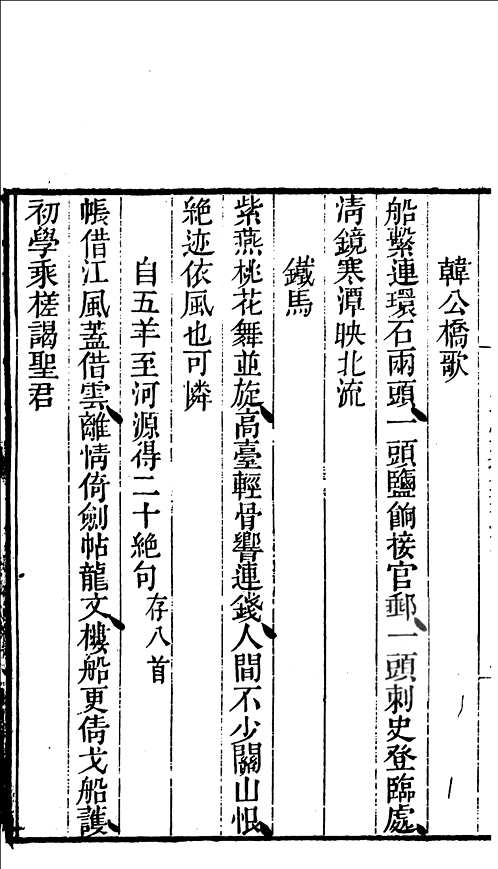 韓公橋歌
船繫連環石兩頭一頭鹽餉接官郵一頭刺史登臨處
清鏡寒潭映北流
鐵馬
紫燕桃花舞並旋高臺輕骨響連錢人間不少關山恨
絕迹依風也可憐
自五羊至河源得二十絕句存八首
帳借江風蓋借雲離情倚劍帖龍文樓船更倩戈船護
初學乘槎謁聖君